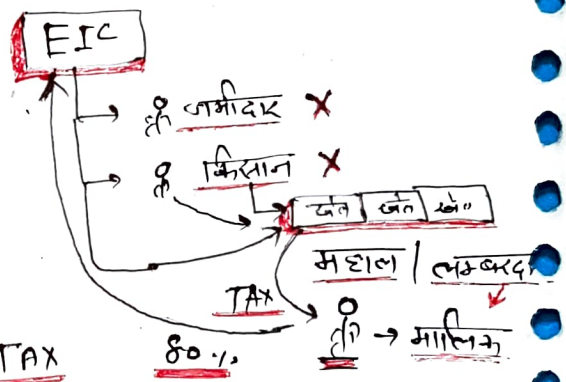 EIC
जमीदार X
किसान X
खेत खेत खे०
महाल / लम्बरदा
TAX
→ मालिक
TAX 80 %